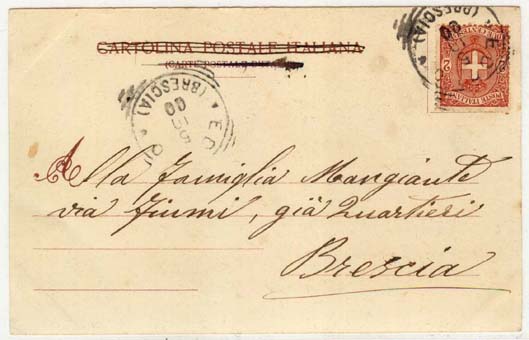 CARTOLINA POSTALE ITALIANA
(CARTE POSTALE D'ITALIE)
(BRESCIA)
00
(BRESCIA)
00
POSTE ITALIANE
2
2
Alla famiglia Mangiante
via Fiumi, già Quartieri
Brescia